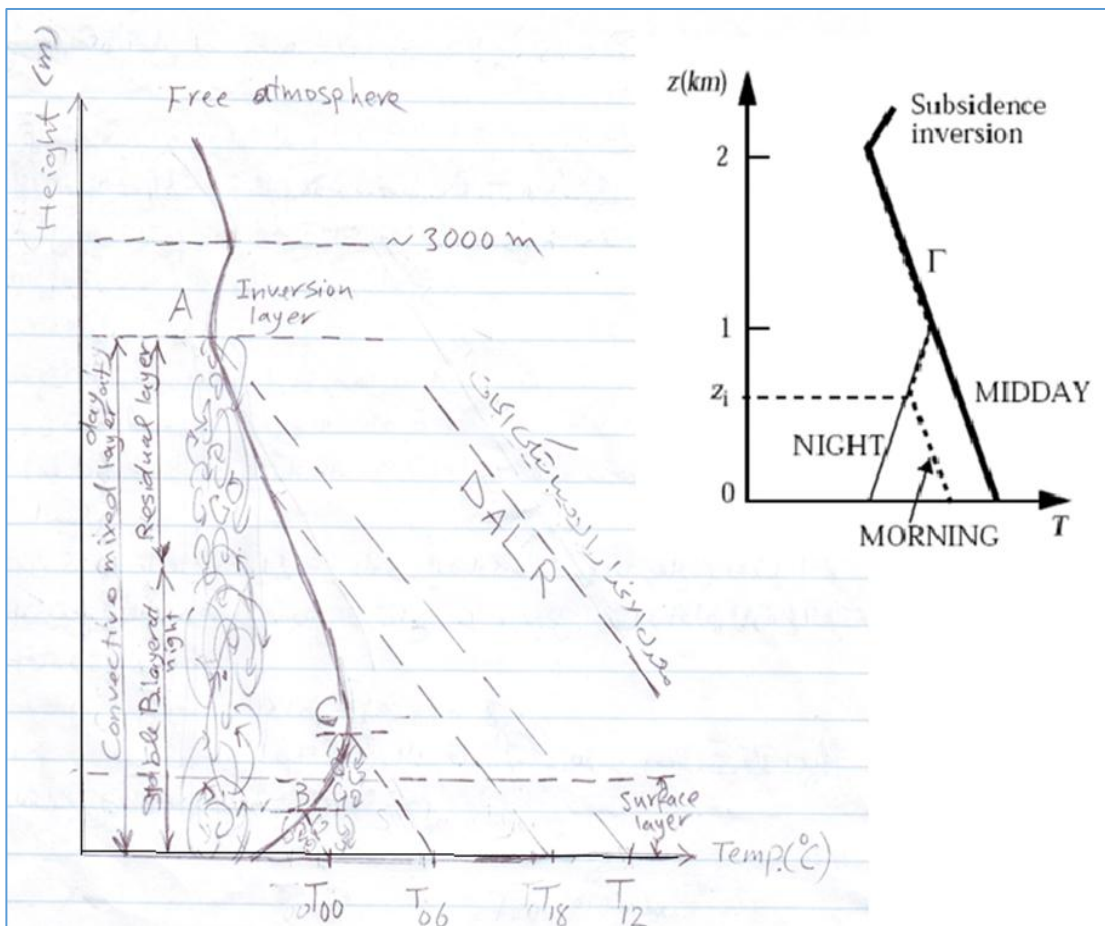 Height (m)
Free atmosphere
~ 3000 m
A
Inversion
layer
Convective mixed layer
day
Residual layer
night
DALR
C
B
Surface
layer
Temp.(°C)
T00
T06
T18
T12
z(km)
Subsidence
inversion
2
Γ
1
zi
MIDDAY
NIGHT
0
T
MORNING